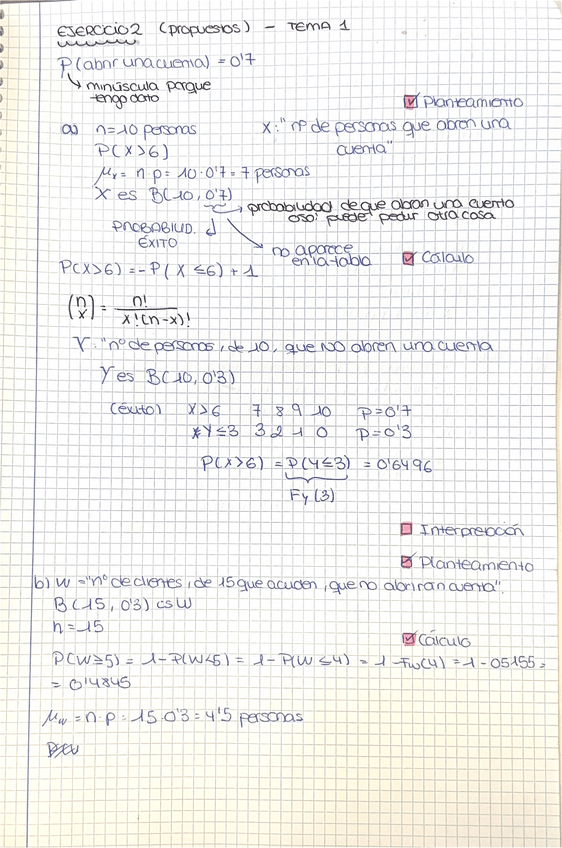 EJERCICIO 2 (propuestos) - TEMA 1
P(abrir una cuenta) = 0'7
↳ minúscula porque
tengo dato
☑ Planteamiento
a) n=10 personas X: "nº de personas que abren una
cuenta"
P(X>6)
μx = n·p = 10·0'7 = 7 personas
X es B(10, 0'7)
→ probabilidad de que abran una cuenta
oso: puede pedir otra cosa
PROBABILID.
ÉXITO
no aparece
en la tabla
☑ Cálculo
P(X>6) = -P(X≤6) + 1
(n x) = n! / x!(n-x)!
Y: "nº de personas, de 10, que NO abren una cuenta
Y es B(10, 0'3)
(éxito) X>6 7 8 9 10 p=0'7
*Y≤3 3 2 1 0 p=0'3
P(X>6) = P(Y≤3) = 0'6496
Fy(3)
☐ Interpretación
☑ Planteamiento
b) W = "nº de clientes, de 15 que acuden, que no abrirían cuenta".
B(15, 0'3) es W
n=15
☑ Cálculo
P(W≥5) = 1-P(W<5) = 1-P(W≤4) = 1-Fw(4) = 1-05155 =
= 0'4845
μw = n·p = 15·0'3 = 4'5 personas